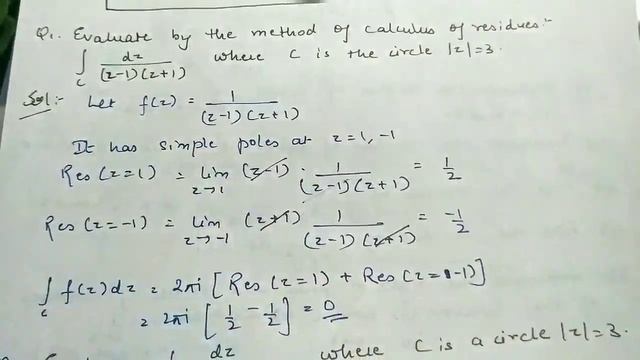 Q1. Evaluate by the method of calculus of residues:-
∫_C dz/((z-1)(z+1)) where C is the circle |z|=3.
Sol:- Let f(z) = 1/((z-1)(z+1))
It has simple poles at z=1, -1
Res(z=1) = lim_{z→1} (z-1) · 1/((z-1)(z+1)) = 1/2
Res(z=-1) = lim_{z→-1} (z+1) 1/((z-1)(z+1)) = -1/2
∫_C f(z)dz = 2πi [Res(z=1) + Res(z=-1)]
= 2πi [1/2 - 1/2] = 0
dz where C is a circle |z|=3.